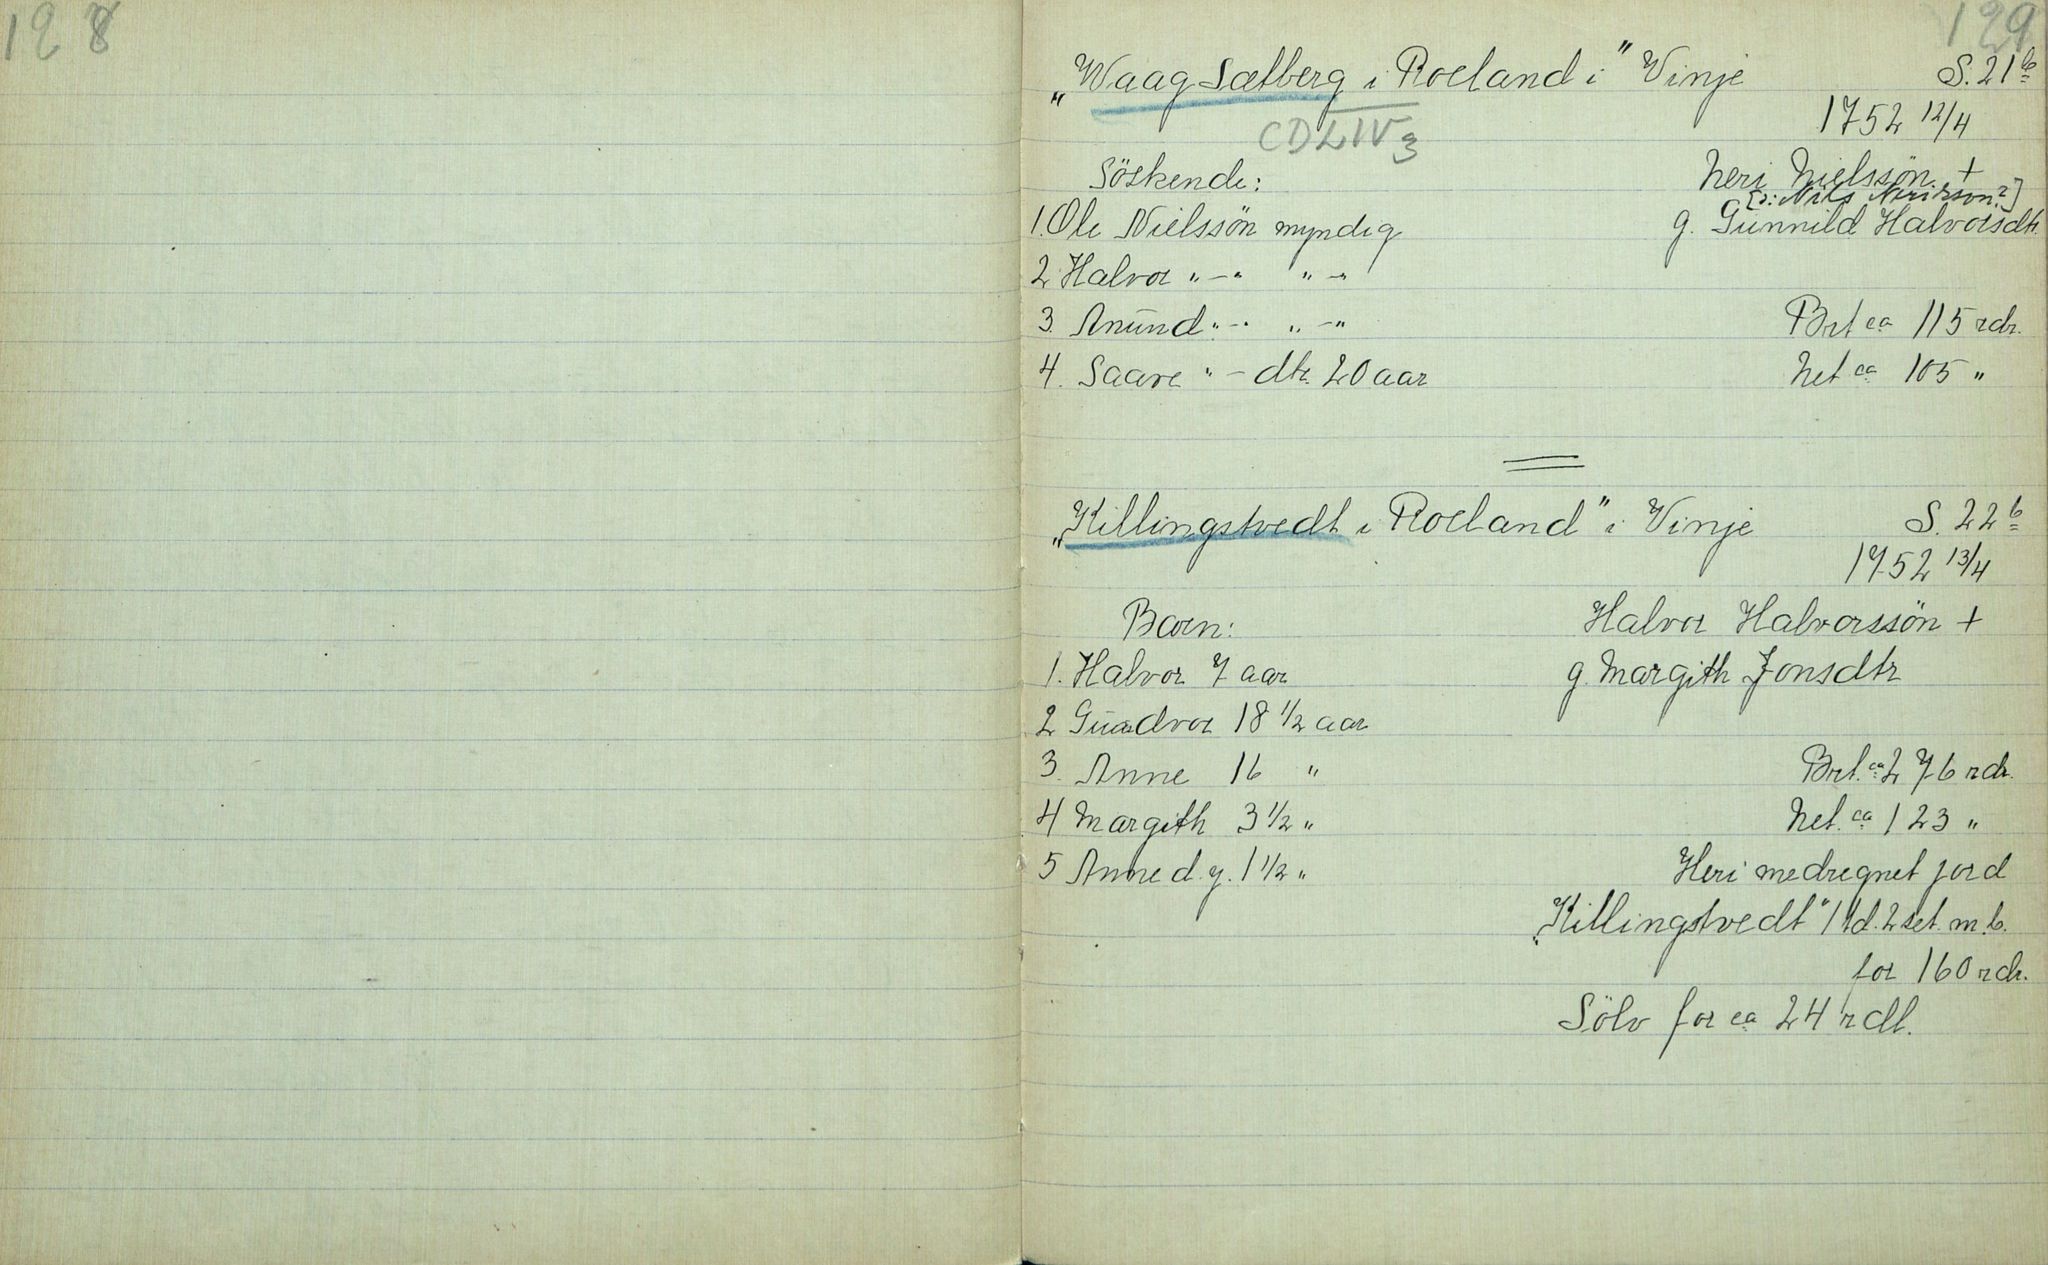 128
129
„Waag Sætberg i Roeland i" Vinje S. 21 b
1752 12/4
CDLIV 3
Söskende: Neri Nielssön +
[ɔ: Nils Nerisson?]
1. Ole Nielssön myndig g. Gunnild Halvorsdtr.
2 Halvor „-„ „-„
3. Anund „-„ „-„ Brt ca 115 rdr.
4. Saave „- dtr. 20 aar Net ca 105 „
„Killingstvedt i Roeland" i Vinje S. 22 b
1752 13/4
Barn: Halvor Halvorssön +
1. Halvor 7 aar g. Margith Jonsdtr
2 Gundvor 18 1/2 aar
3. Anne 16 „ Brt. ca 276 rdr.
4 Margith 3 1/2 „ Net. ca 123 „
5 Anne d. y. 1 1/2 „ Heri medregnet jord
„Killingstvedt" 1 td. 2 set. m. b.
for 160 rdr.
Sölv for ca 24 rdl.